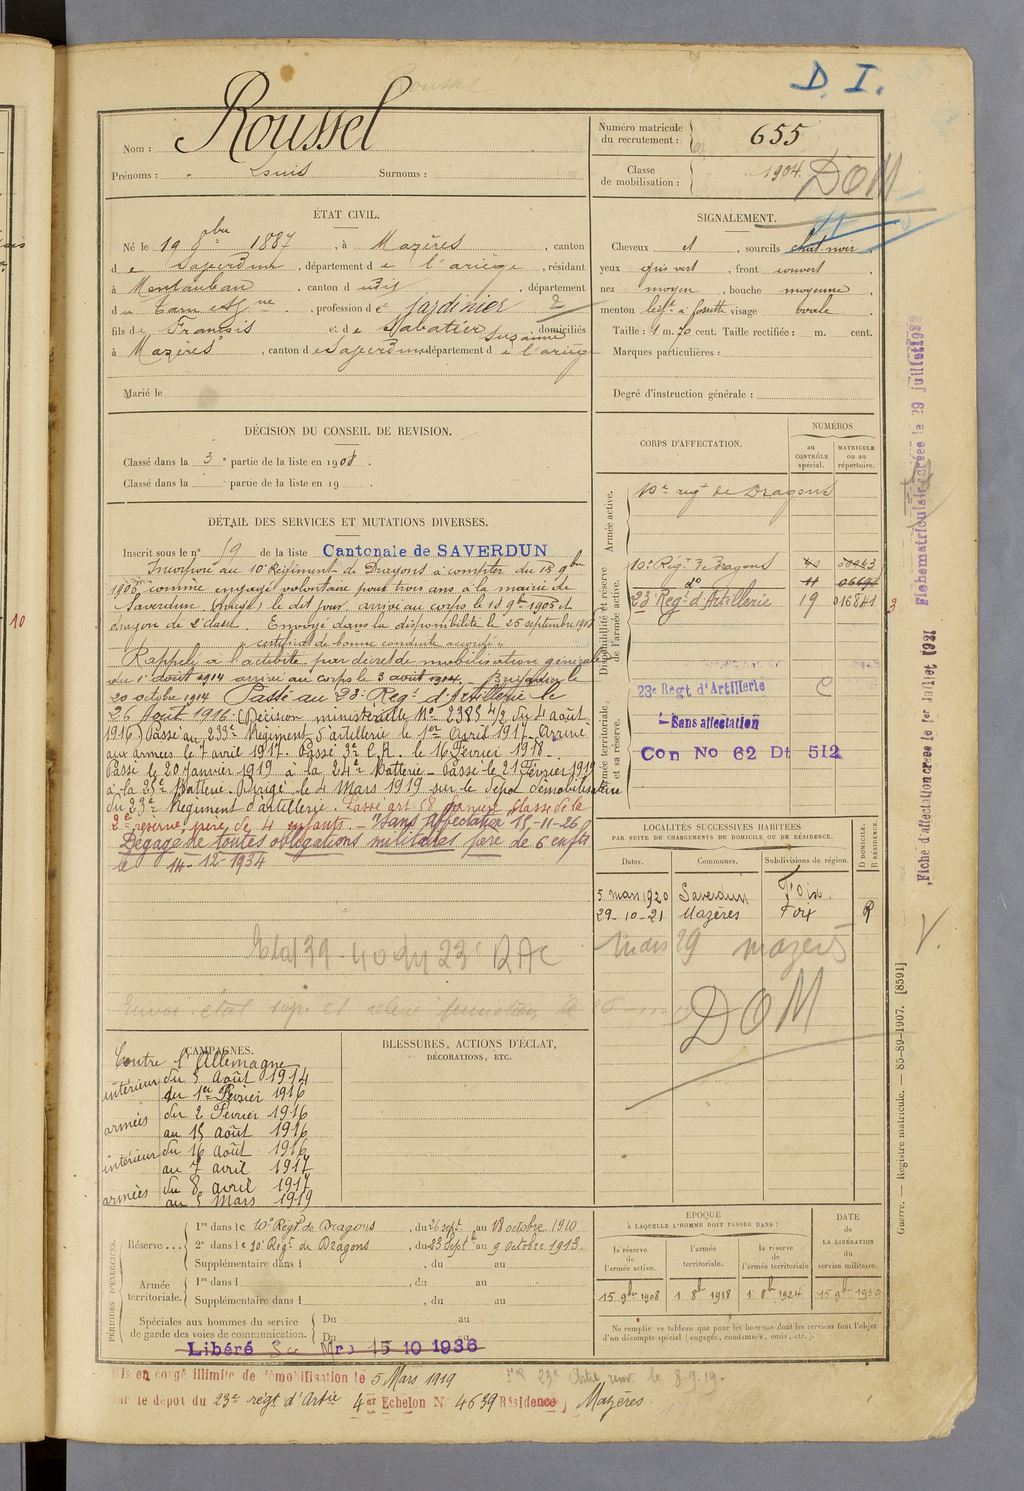 D. I.
Nom : Roussel
Prénoms : Louis Surnoms :
Numéro matricule du recrutement : 655
Classe de mobilisation : 1904.
DOM
ÉTAT CIVIL.
Né le 19 8bre 1887, à Mazères, canton
de Saverdun, département de l'ariège, résidant
à Montauban, canton d udit, département
du Tarn et Gne, profession de jardinier 2
fils de François et de Sabatier Suzanne, domiciliés
à Mazères, canton de Saverdun, département de l'ariège
Marié le
SIGNALEMENT.
Cheveux et, sourcils chat. noir
yeux gris vert, front couvert,
nez moyen, bouche moyenne,
menton fossette visage ovale.
Taille : 1 m. 70 cent. Taille rectifiée : m. cent.
Marques particulières :
Degré d'instruction générale :
DÉCISION DU CONSEIL DE REVISION.
Classé dans la 3e partie de la liste en 1908.
Classé dans la partie de la liste en 19 .
DÉTAIL DES SERVICES ET MUTATIONS DIVERSES.
Inscrit sous le n° 19 de la liste Cantonale de SAVERDUN
Incorporé au 10e Régiment de Dragons à compter du 18 9bre
1905 comme engagé volontaire pour trois ans à la mairie de
Saverdun (Ariège) le dit jour. arrivé au corps le 18 9bre 1905 et
dragon de 2e classe. Envoyé dans la disponibilité le 25 septembre 1908
certificat de bonne conduite accordé.
Rappelé à l'activité par décret de mobilisation générale
du 1er août 1914 arrivé au corps le 3 août 1914. Brigadier le
20 octobre 1914 Passé au 23e Régt d'Artillerie le
26 Août 1916 (Décision ministérielle No 2385 4/2 du 4 août
1916) Passé au 233e Régiment d'artillerie le 1er Avril 1917 - Arrivé
aux armées le 7 avril 1917. Passé 3e C.R. le 16 Février 1918 -
Passé le 20 Janvier 1919 à la 24e Batterie - Passé le 21 Février 1919
à la 29e Batterie. Dirigé le 4 Mars 1919 sur le Dépôt démobilisateur
du 23e Régiment d'artillerie. Passé art 58 dernière classe de la
2e réserve, père de 4 enfants. - Sans affectation 15-11-26
Dégagé de toutes obligations militaires père de 6 enfts
le 14-12-1934
Etat 39-40 du 23e RAC
CORPS D'AFFECTATION.
NUMÉROS
au CONTRÔLE spécial.
MATRICULE ou au répertoire.
Armée active.
10e régt de Dragons
Disponibilité et réserve de l'armée active.
10e Régt de Dragons
do
23 Régt d'Artillerie 19 016841
3
Armée territoriale et sa réserve.
23e Régt d'Artillerie C
Sans affectation
Con No 62 Dt 512
LOCALITÉS SUCCESSIVES HABITÉES
PAR SUITE DE CHANGEMENTS DE DOMICILE OU DE RÉSIDENCE.
Dates. Communes. Subdivisions de région. D DOMICILE. R RÉSIDENCE.
5 mars 1920 Saverdun Foix
29-10-21 Mazères Foix R
29 mazères
DOM
CAMPAGNES.
Contre l'Allemagne
intérieur du 3 Août 1914
au 1er Février 1916
armées du 2 Février 1916
au 15 août 1916
intérieur du 16 Août 1916
au 7 avril 1917
armées du 8 avril 1917
au 5 Mars 1919
BLESSURES, ACTIONS D'ÉCLAT,
DÉCORATIONS, ETC.
PÉRIODES D'EXERCICES.
Réserve ...
1re dans le 10e Régt de Dragons, du 26 sept. au 18 octobre 1910
2e dans le 10e Régt de Dragons, du 23 Sept au 9 octobre 1913.
Supplémentaire dans l , du au
Armée territoriale.
1re dans l , du au
Supplémentaire dans l , du au
Spéciales aux hommes du service
de garde des voies de communication.
Du au
Du au
Libéré Sce Mre 15 10 1936
EPOQUE
À LAQUELLE L'HOMME DOIT PASSER DANS :
la réserve de l'armée active.
l'armée territoriale.
la réserve de l'armée territoriale
DATE DE LA LIBÉRATION du service militaire.
15 9bre 1908 1 8bre 1918 1 8bre 1924 15 9bre 1930
Ne remplir ce tableau que pour les hommes dont les services font l'objet
d'un décompte spécial (engagés, condamnés, omis, etc.).
Mis en congé illimité de démobilisation le 5 Mars 1919
sur le dépôt du 23e régt d'Artie 4er Echelon N° 4639 Résidence Mazères
Fiche matriculaire créée le 29 juillet
Fiche d'affectation créée le 1er Juillet 1921
Guerre. — Registre matricule. — 85-89-1907. [8591]
10